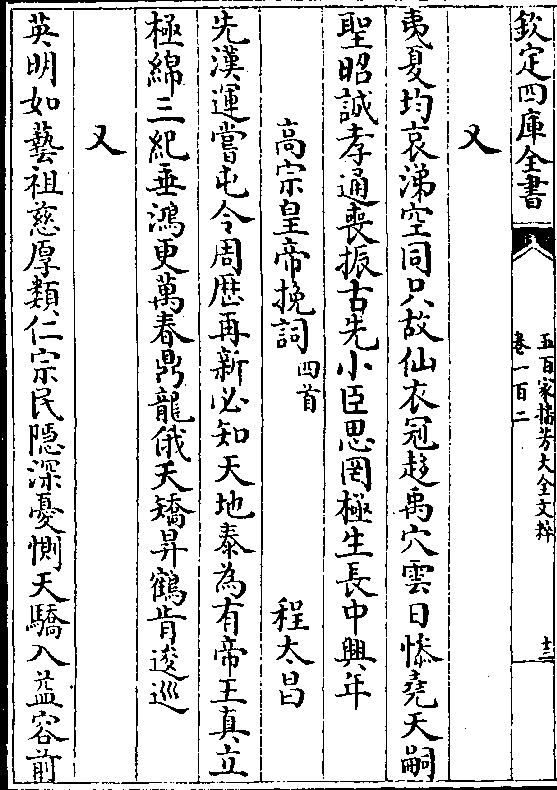 欽定四庫全書
五百家播芳大全文粹
卷一百二
十三
又
夷夏均哀涕空同只故仙衣冠趍禹穴雲日慘堯天嗣
聖昭誠孝通喪振古先小臣思罔極生長中興年
高宗皇帝挽詞四首 程太昌
先漢運嘗屯今周歴再新必知天地泰為有帝王真立
極綿三紀垂鴻更萬春鼎龍俄夭矯昇鶴肯逡巡
又
英明如藝祖慈厚類仁宗民隱深憂惻天驕入益容前